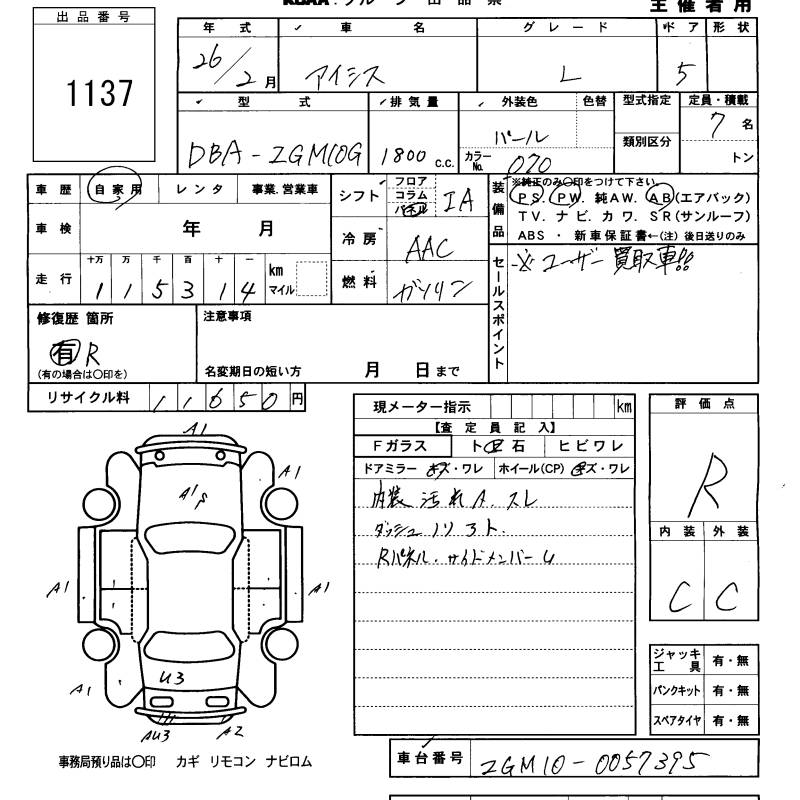 主催者用
出品番号
1137
年式 車名 グレード ドア 形状
26/2月 アイシス L 5
型式 排気量 外装色 色替 型式指定 定員・積載
DBA-ZGM10G 1800 C.C. パール 類別区分 7名
カラーNo. 070 トン
車歴 自家用 レンタ 事業.営業車
シフト フロア コラム パネル IA
装備品 ※純正のみ〇印をつけて下さい
PS. PW. 純AW. AB(エアバック)
TV. ナビ. カワ. SR(サンルーフ)
ABS ・ 新車保証書←(注) 後日送りのみ
車検 年 月
冷房 AAC
走行 十万 万 千 百 十 一
1 1 5 3 1 4 km マイル
燃料 ガソリン
セールスポイント ※ユーザー買取車!!
修復歴 箇所 注意事項
有 R
(有の場合は〇印を) 名変期日の短い方 月 日まで
リサイクル料 11650円
現メーター指示 km
【査定員記入】
Fガラス ト 石 ヒビワレ
ドアミラー キズ・ワレ ホイール(CP) キズ・ワレ
内装 汚れA. スレ
ダッシュ ノリ 3ト.
Rパネル・サイドメンバーU
評価点
R
内装 外装
C C
ジャッキ工具 有・無
パンクキット 有・無
スペアタイヤ 有・無
A1
A1
A1
A1
A1
U3
A1
AU3 A2
事務局預り品は〇印 カギ リモコン ナビロム
車台番号 ZGM10-0057395